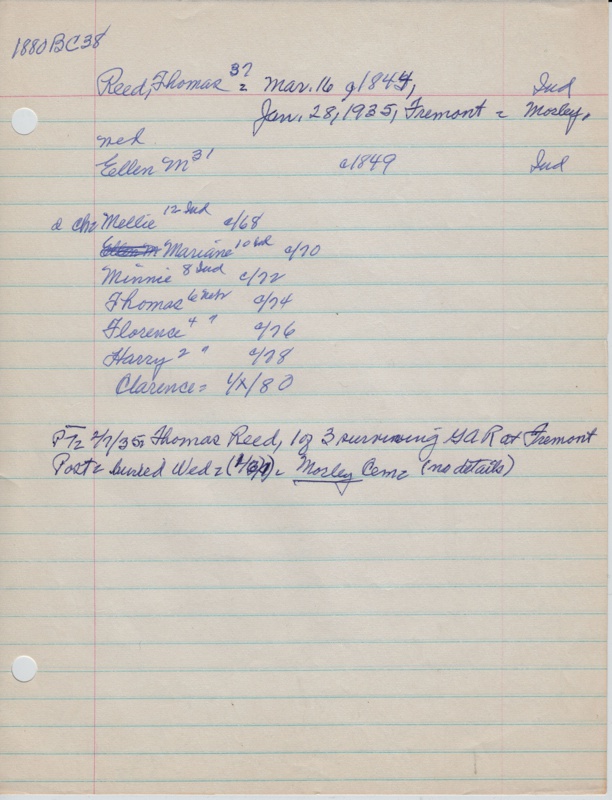 1880 BC 38
Reed, Thomas 37 = Mar. 16, 1844, Ind
Jan. 28, 1935, Fremont = Mosley,
wed.
Ellen M 31 c1849 Ind
2 ch= Mellie 12 Ind c/68
Mariane 10 Ind c/70
Minnie 8 Ind c/72
Thomas 6 Nebr c/74
Florence 4 " c/76
Harry 2 " c/78
Clarence = 4/x/80
FT= 2/7/35, Thomas Reed, 1 of 3 surviving GAR at Fremont
Post = buried Wed = = Mosley Cem = (no details)